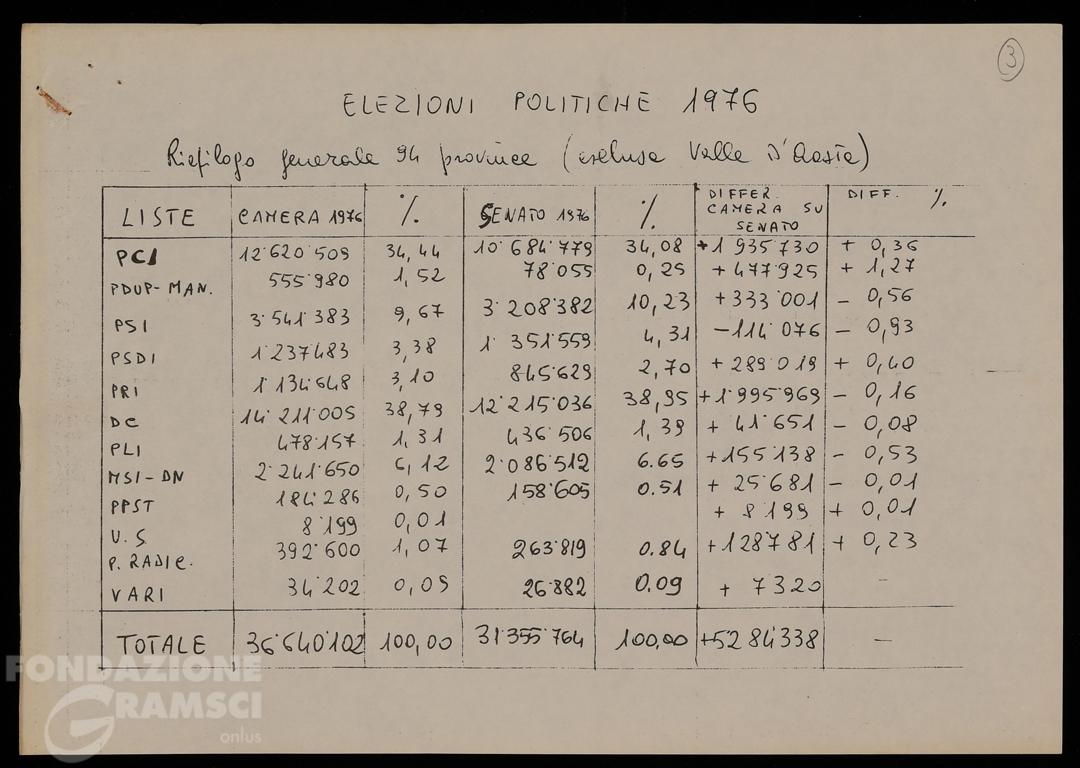 3
ELEZIONI POLITICHE 1976
Riepilogo generale 94 province (esclusa Valle D'Aosta)
LISTE CAMERA 1976 % SENATO 1976 % DIFFER. CAMERA SU SENATO DIFF. %
PCI 12'620'509 34,44 10'684'779 34,08 +1'935'730 + 0,36
PDUP-MAN. 555'980 1,52 78'055 0,25 +477'925 + 1,27
PSI 3'541'383 9,67 3'208'382 10,23 +333'001 - 0,56
PSDI 1'237'483 3,38 1'351'559 4,31 -114'076 - 0,93
PRI 1'134'648 3,10 845'629 2,70 +289'019 + 0,40
DC 14'211'005 38,79 12'215'036 38,95 +1'995'969 - 0,16
PLI 478'157 1,31 436'506 1,39 + 41'651 - 0,08
MSI-DN 2'241'650 6,12 2'086'512 6.65 +155'138 - 0,53
PPST 184'286 0,50 158'605 0.51 + 25'681 - 0,01
U.S. 8'199 0,01 + 8'199 + 0,01
P. RADIC. 392'600 1,07 263'819 0.84 +128'781 + 0,23
VARI 34'202 0,09 26'882 0.09 + 7'320 -
TOTALE 36'640'102 100,00 31'355'764 100,00 +5'284'338 -
FONDAZIONE
GRAMSCI
onlus